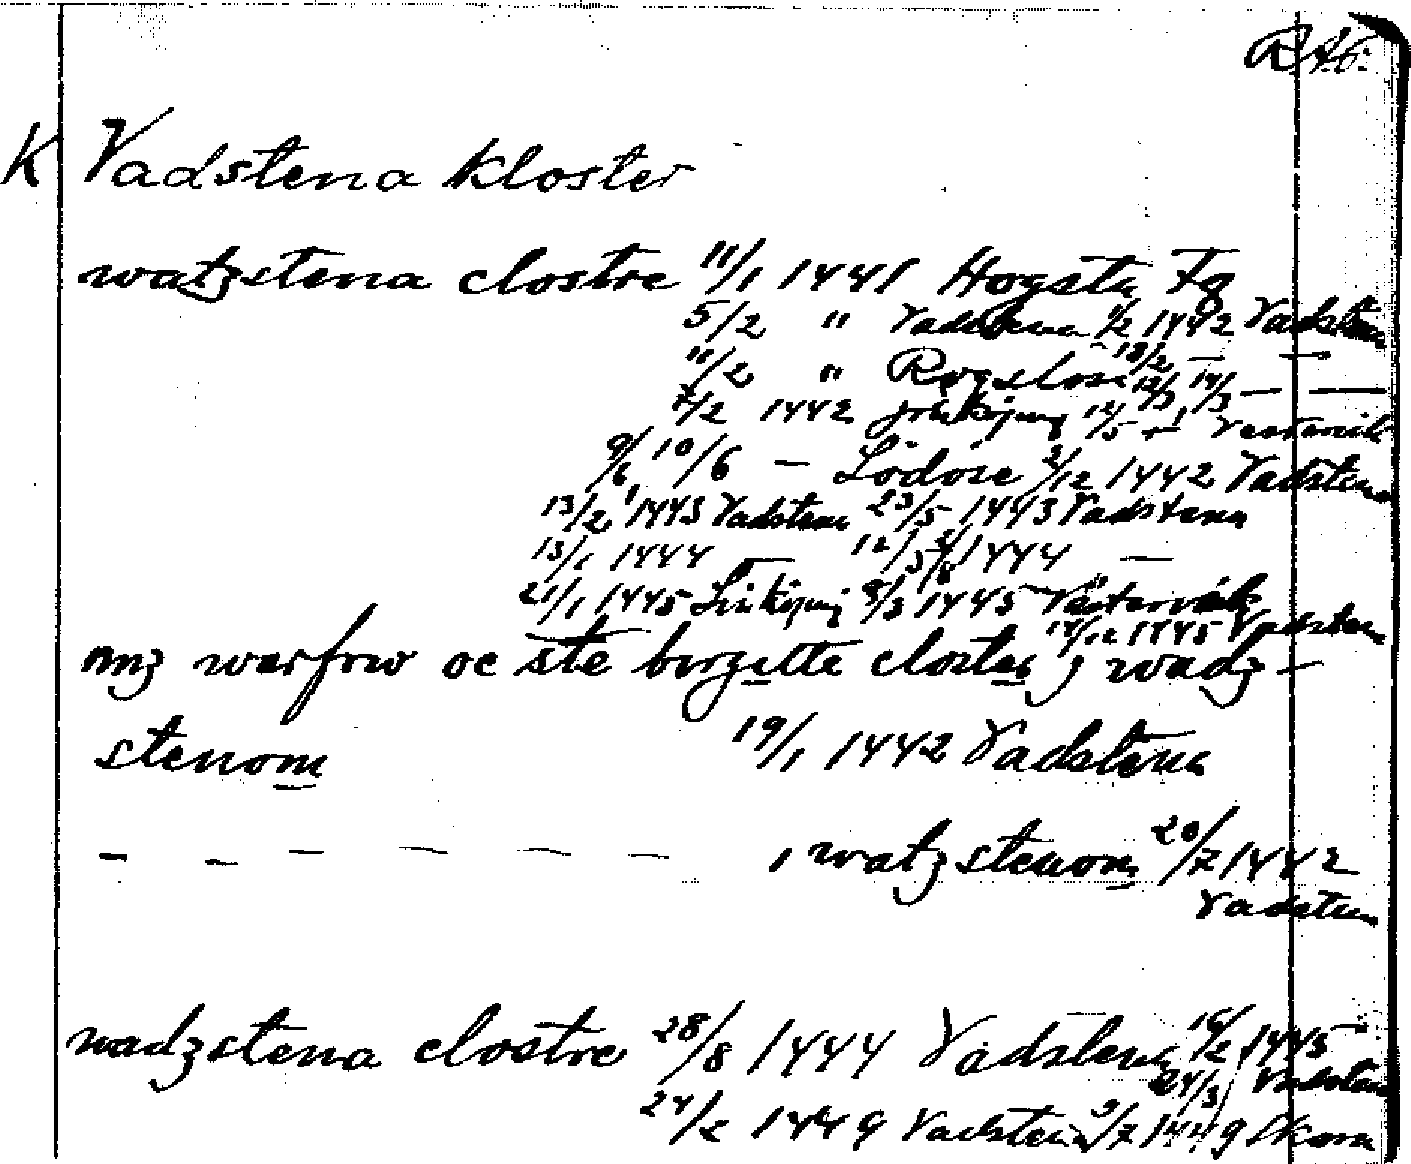 K Vadstena kloster
watzstena clostre 11/1 1441 Hogsta Fg
5/2 " Vadstena 1/2 1442 Vadstena
11/2 " Rogslösa 18/2 — —
7/2 1442 12/5 — Västervik
9/6 10/6 — Lödöse 3/12 1442 Vadstena
13/2 1443 Vadstena 23/5 1443 Vadstena
13/1 1444 — 12/5 1444 —
21/1 1445 Linköping 8/3 1445 Västervik
14/12 1445 Vadstena
warfrw oc ste birgitte closter j wadz-
stenom 19/1 1442 Vadstena
— — — — — — i watzstenom 20/7 1442
Vadstena
wadzstena clostre 28/8 1444 Vadstena 16/2 1445
24/3 Vadstena
24/2 1449 Vadstena 9/7 1449 Skara